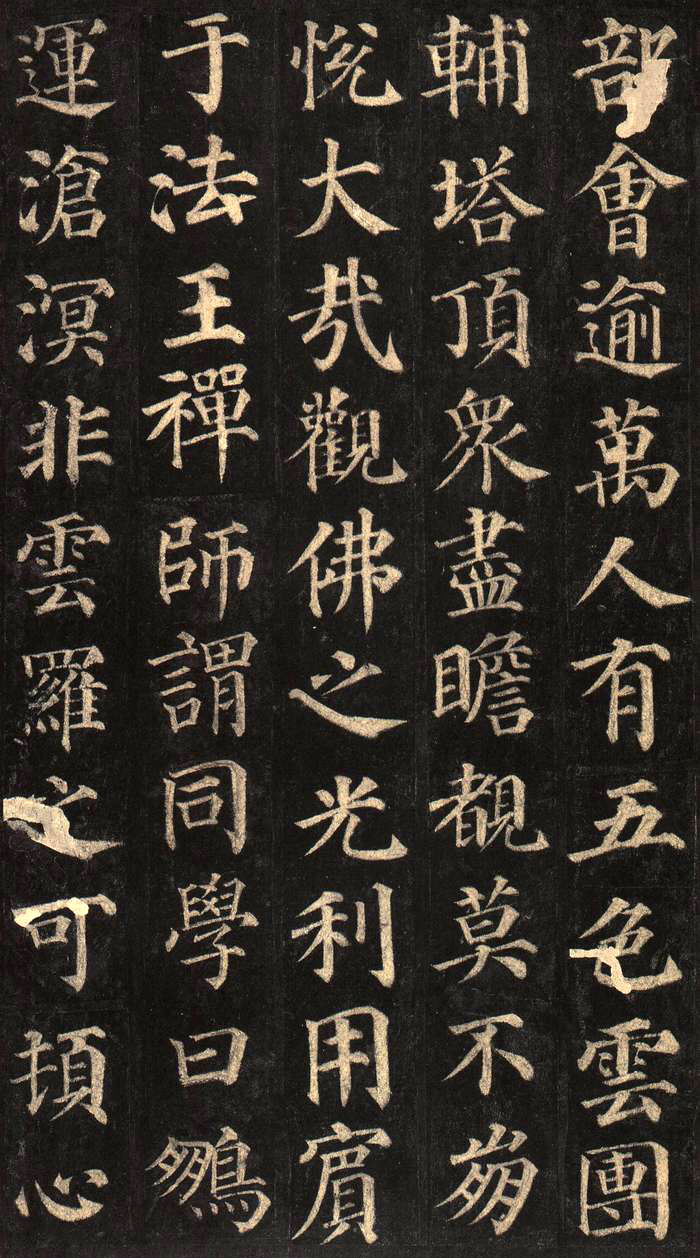 部會逾萬人有五色雲團
輔塔頂眾盡瞻覩莫不崩
悅大哉觀佛之光利用賓
于法王禪師謂同學曰鵬
運滄溟非雲羅之可頓心